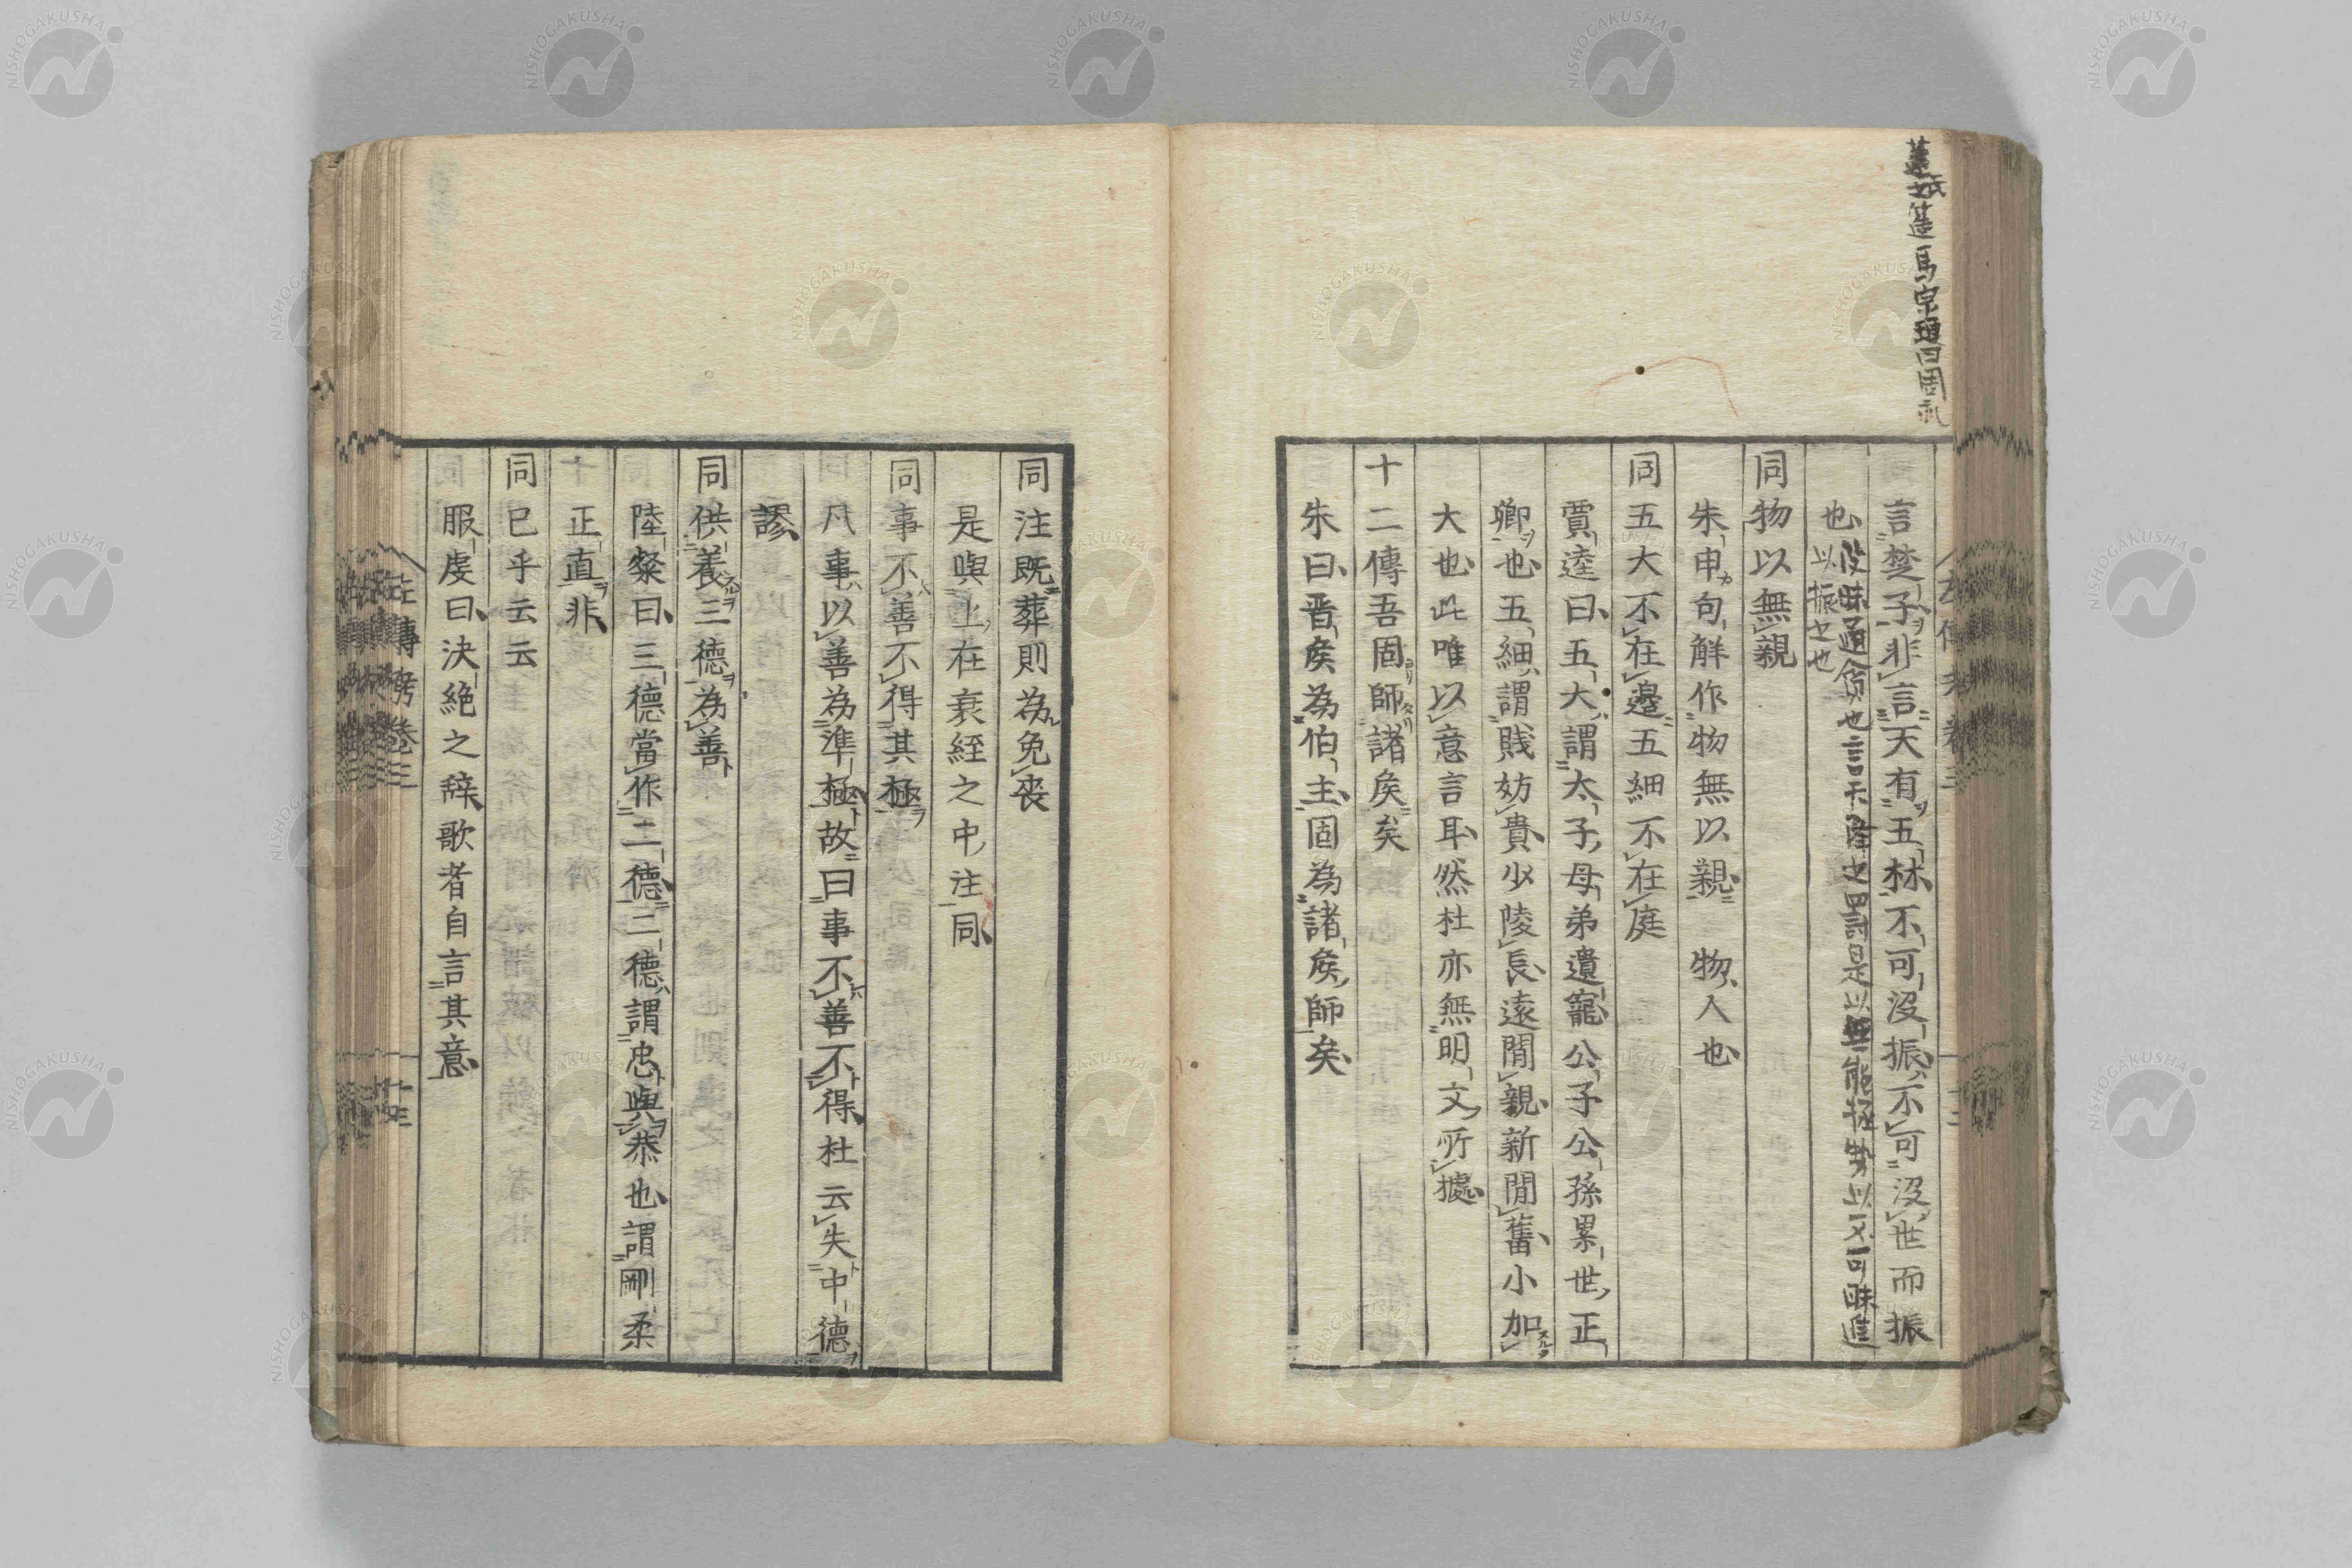 馬宗璉曰固
言楚子非言天有五材不可沒振不可沒世而振
也
沒昧通貪也言天降之罰是以無能
以振之也
同物以無親
朱申句解作物無以親 物人也
同五大不在邊五細不在庭
賈逵曰五大謂太子母弟遺寵公子公孫累世正
卿也五細謂賤妨貴少陵長遠間親新間舊小加
大也此唯以意言耳然杜亦無明文所據
十二傳吾固師諸矦矣
朱曰晋矦為伯主固為諸矦師矣
同注既葬則為免喪
是與上在衰絰之中注同
同事不善不得其極
凡事以善為準極故曰事不善不得杜云失中德
謬
同供養三德為善
陸粲曰三德當作二德二德謂忠與恭也謂剛柔
正直非
同已乎云云
服虔曰決絶之辞歌者自言其意
左傳考卷三 十三
NISHOGAKUSHA